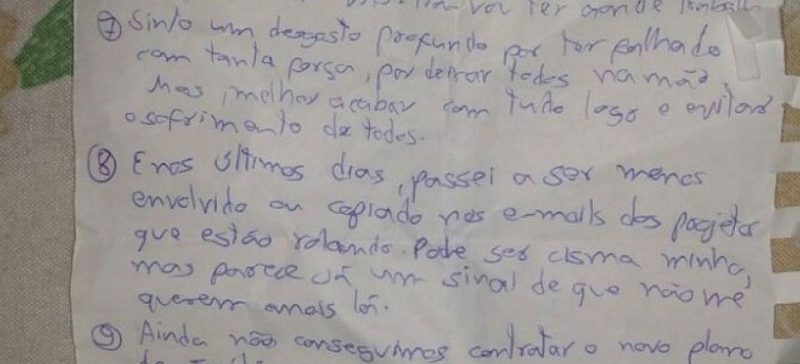 não vou ter aonde trabalh
⑦ Sinto um desgosto profundo por ter falhado
com tanta força, por deixar todos na mão.
Mas melhor acabar com tudo logo e evitar
o sofrimento de todos.
⑧ E nos últimos dias, passei a ser menos
envolvido ou copiado nos e-mails dos projetos
que estão rolando. Pode ser cisma minha,
mas parece já um sinal de que não me
querem mais lá.
⑨ Ainda não conseguimos contratar o novo plano